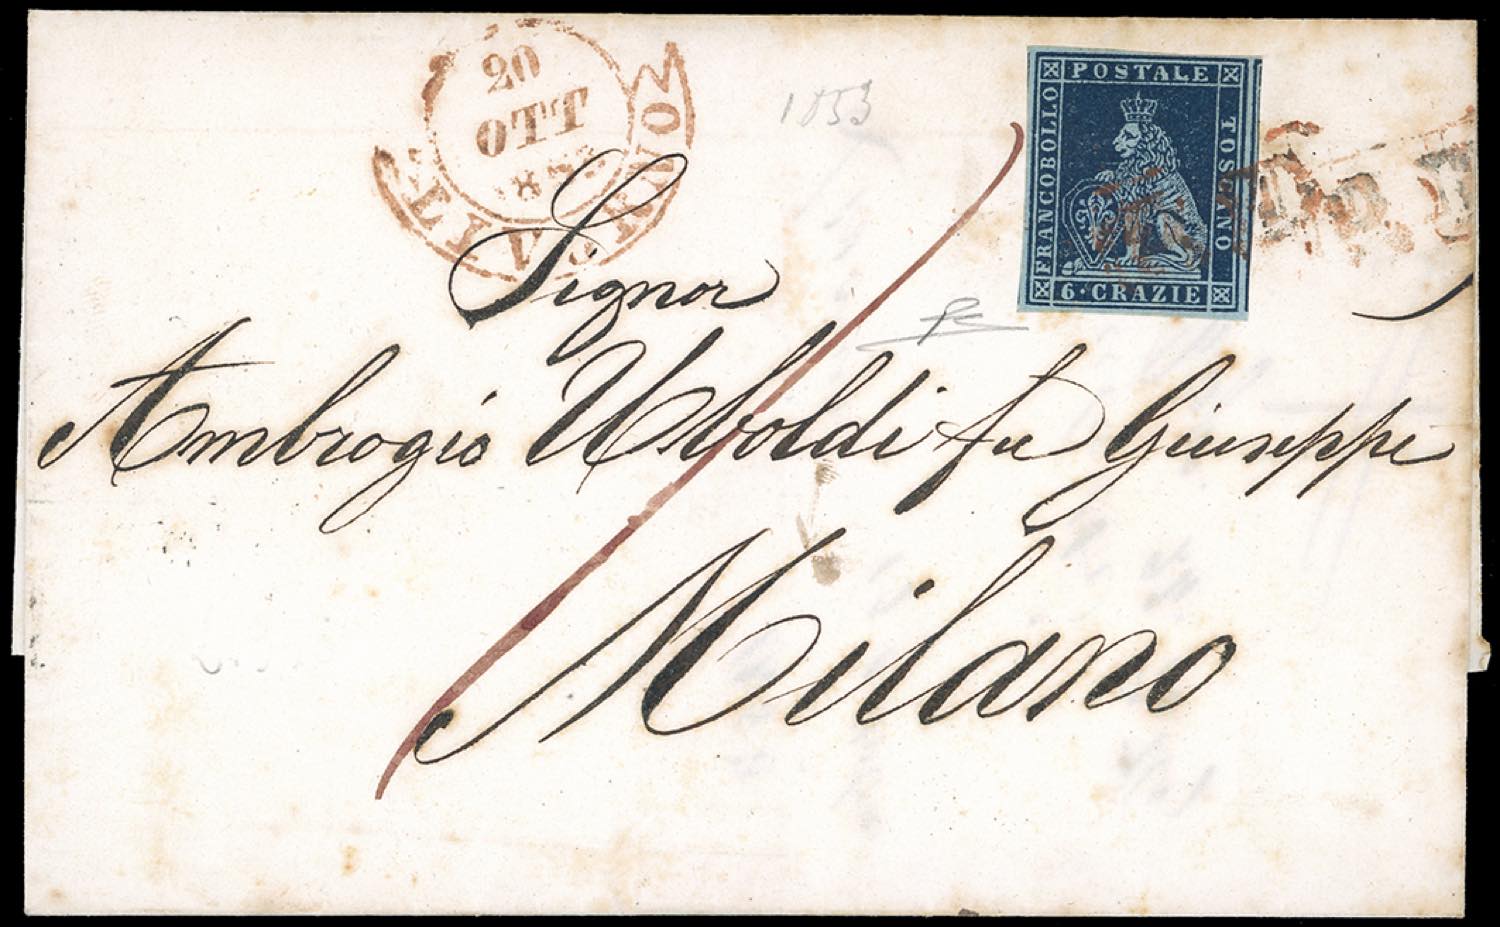 20
OTT
1853
LIVORNO
1853
FRANCOBOLLO
POSTALE
TOSCANO
6·CRAZIE
P.D.
Signor
Ambrogio Uboldi fu Giuseppe
Milano